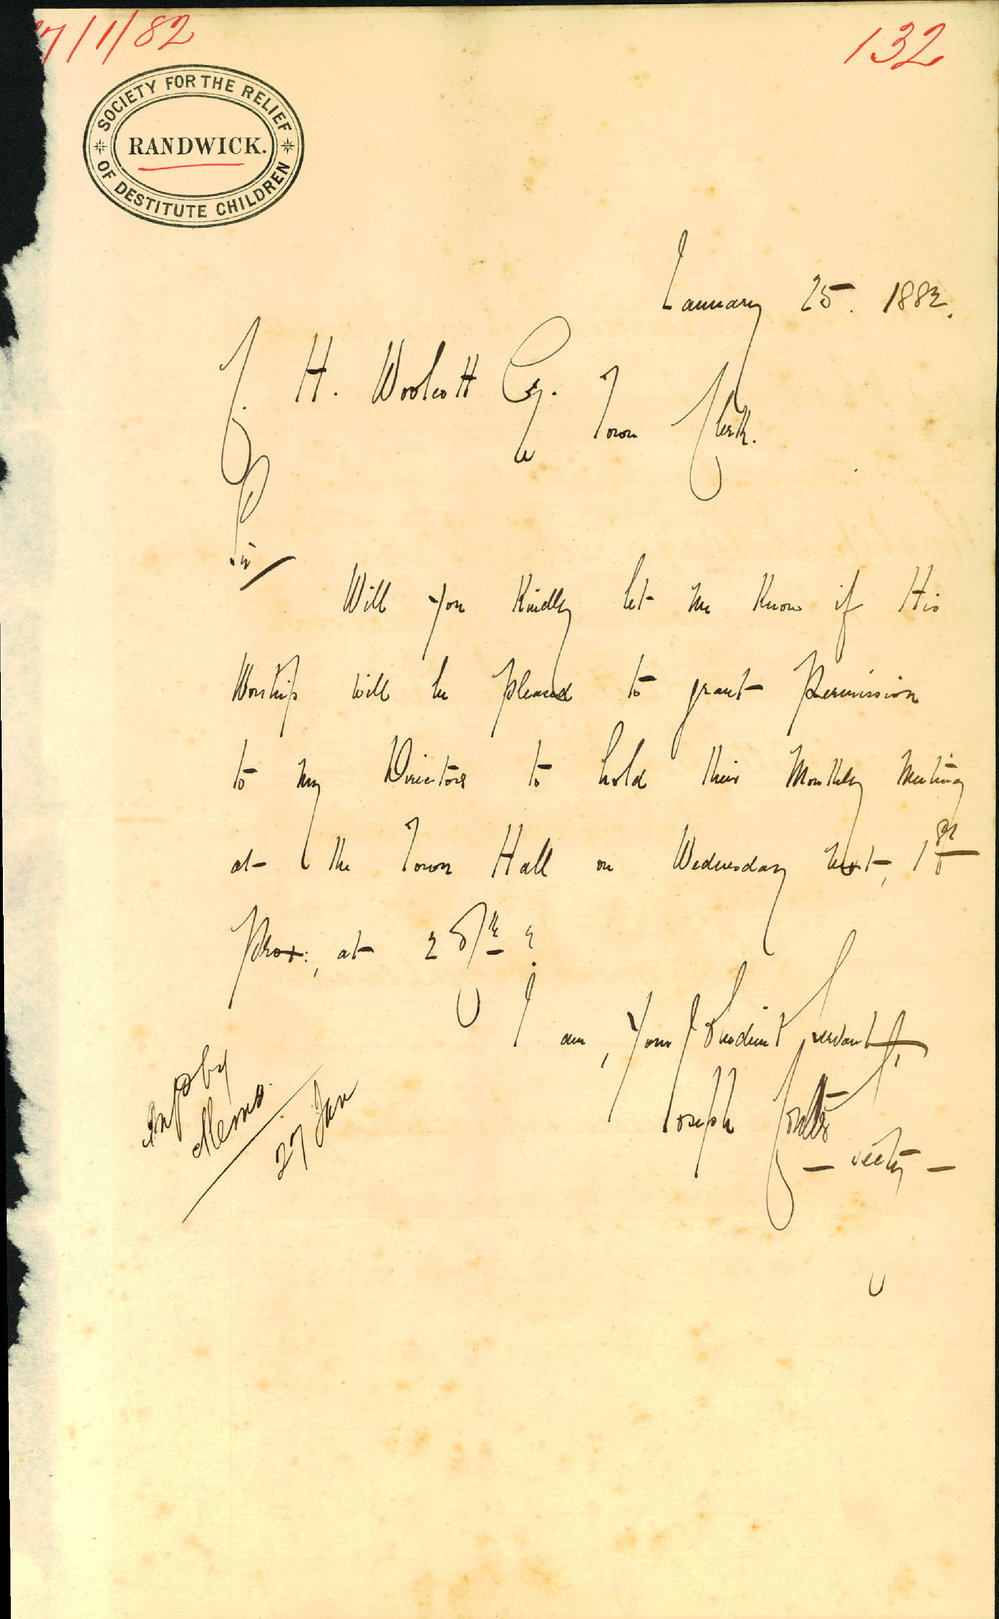 7/1/82
132
SOCIETY FOR THE RELIEF
RANDWICK.
OF DESTITUTE CHILDREN
January 25. 1882.
J. H. Woolcott Esq. Town Clerk.
Sir
Will you Kindly let me Know if His
Worship will be pleased to grant Permission
to my Directors to hold their Monthly Meeting
at the Town Hall on Wednesday next, 1st
Prox:, at
I am, Your Obedient Servant,
Joseph Coulter
— Secty —
Inf by
Memo.
27 Jan